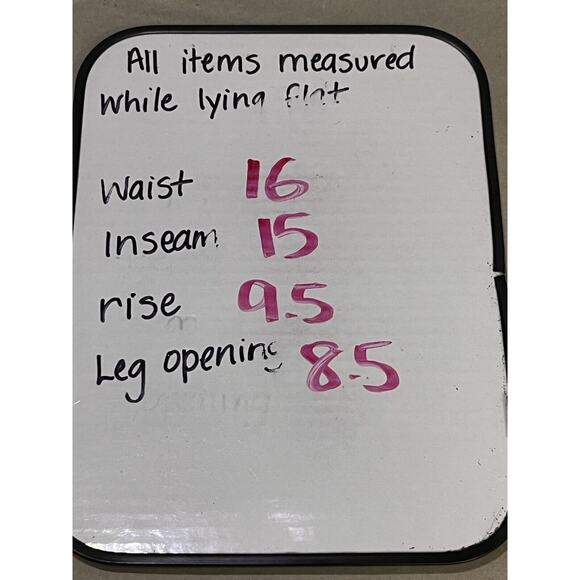 All items measured
while lying flat
waist 16
Inseam 15
rise 9.5
Leg opening 8.5